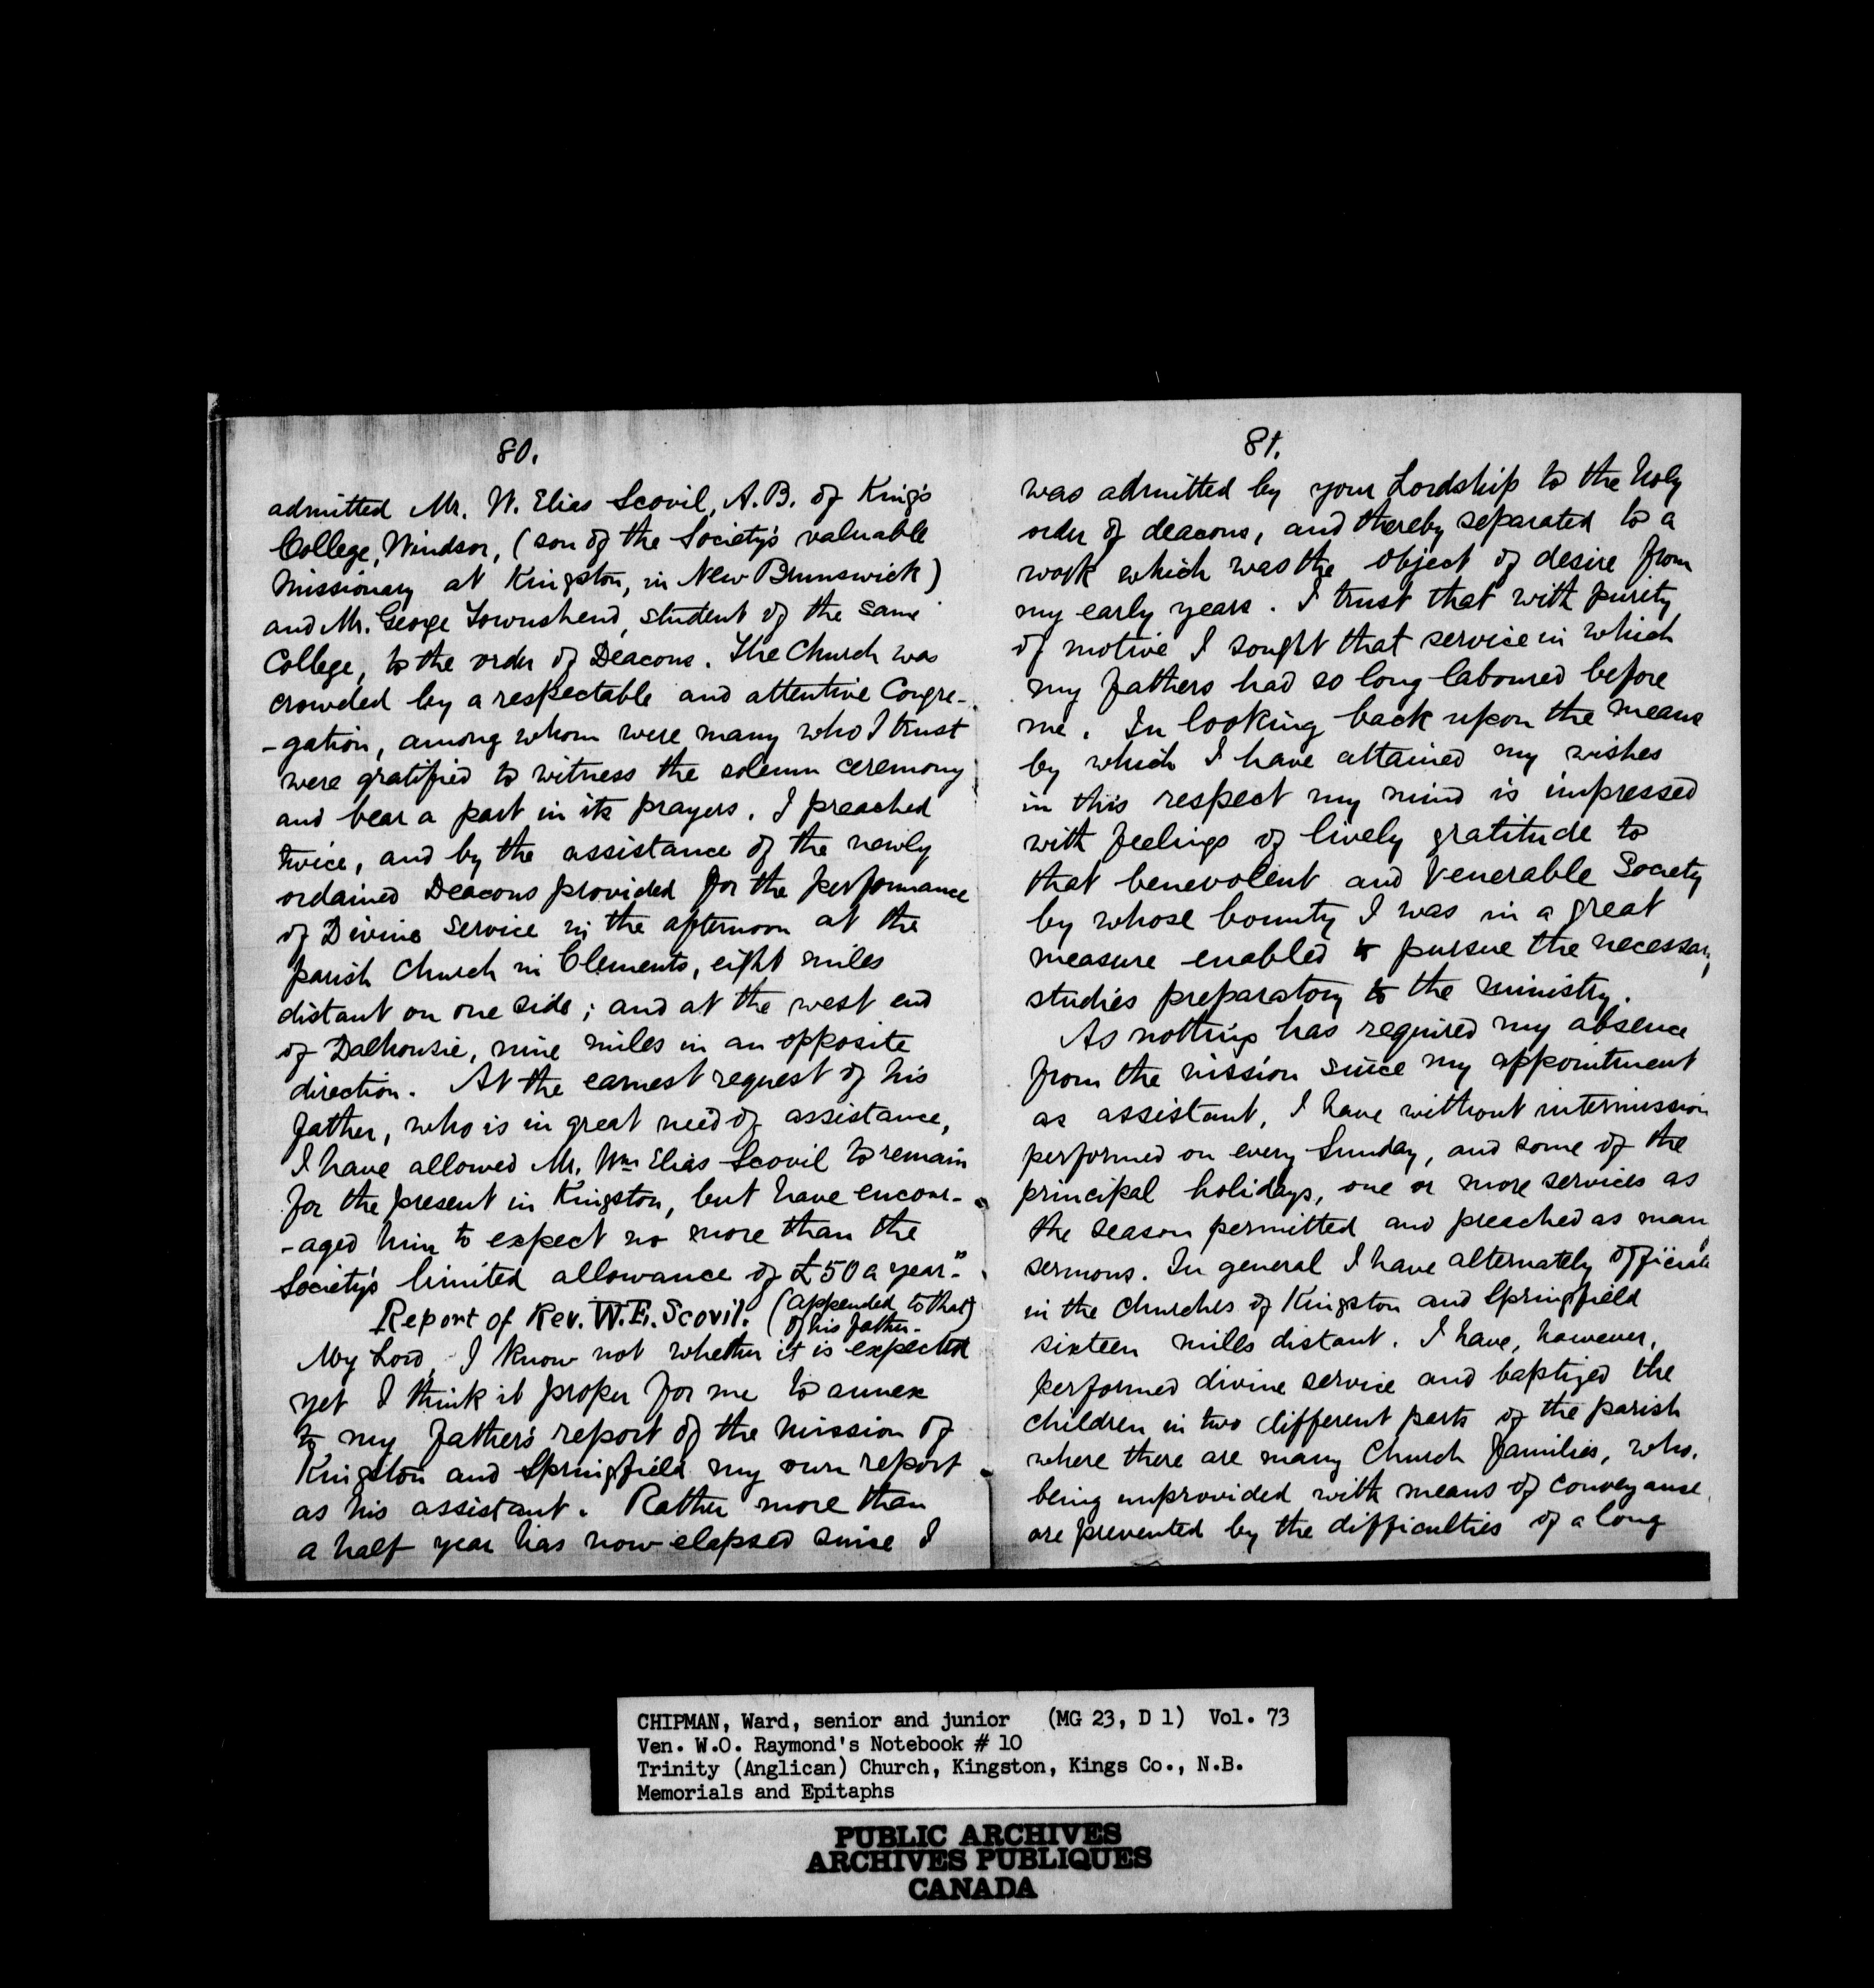 80.
admitted Mr. W. Elias Scovil, A.B. of King's
College, Windsor, (son of the Society's valuable
missionary at Kingston, in New Brunswick)
and Mr. George Townshend, student of the same
College, to the order of Deacons. The Church was
crowded by a respectable and attentive Congre-
-gation, among whom were many who I trust
were gratified to witness the solemn ceremony
and bear a part in its prayers. I preached
twice, and by the assistance of the newly
ordained Deacons provided for the performance
of Divine Service in the afternoon at the
parish Church in Clements, eight miles
distant on one side; and at the west end
of Dalhousie, nine miles in an opposite
direction. At the earnest request of his
father, who is in great need of assistance,
I have allowed Mr. Wm Elias Scovil to remain
for the present in Kingston, but have encour-
-aged him to expect no more than the
Society's limited allowance of £50 a year."
Report of Rev. W.E. Scovil. (appended to that)
of his father.
My Lord, I know not whether it is expected
yet I think it proper for me to annex
to my father's report of the mission of
Kingston and Springfield my own report
as his assistant. Rather more than
a half year has now elapsed since I
81.
was admitted by your Lordship to the holy
order of deacons, and thereby separated to a
work which was the object of desire from
my early years. I trust that with purity
of motive I sought that service in which
my fathers had so long laboured before
me. In looking back upon the means
by which I have attained my wishes
in this respect my mind is impressed
with feelings of lively gratitude to
that benevolent and Venerable Society
by whose bounty I was in a great
measure enabled to pursue the necessary
studies preparatory to the ministry.
As nothing has required my absence
from the mission since my appointment
as assistant, I have without intermission
performed on every Sunday, and some of the
principal holidays, one or more services as
the season permitted and preached as many
sermons. In general I have alternately officiate
in the Churches of Kingston and Springfield
sixteen miles distant. I have, however,
performed divine service and baptized the
children in two different parts of the parish
where there are many Church families, who,
being unprovided with means of conveyance,
are prevented by the difficulties of a long
CHIPMAN, Ward, senior and junior (MG 23, D 1) Vol. 73
Ven. W.O. Raymond's Notebook # 10
Trinity (Anglican) Church, Kingston, Kings Co., N.B.
Memorials and Epitaphs
PUBLIC ARCHIVES
ARCHIVES PUBLIQUES
CANADA